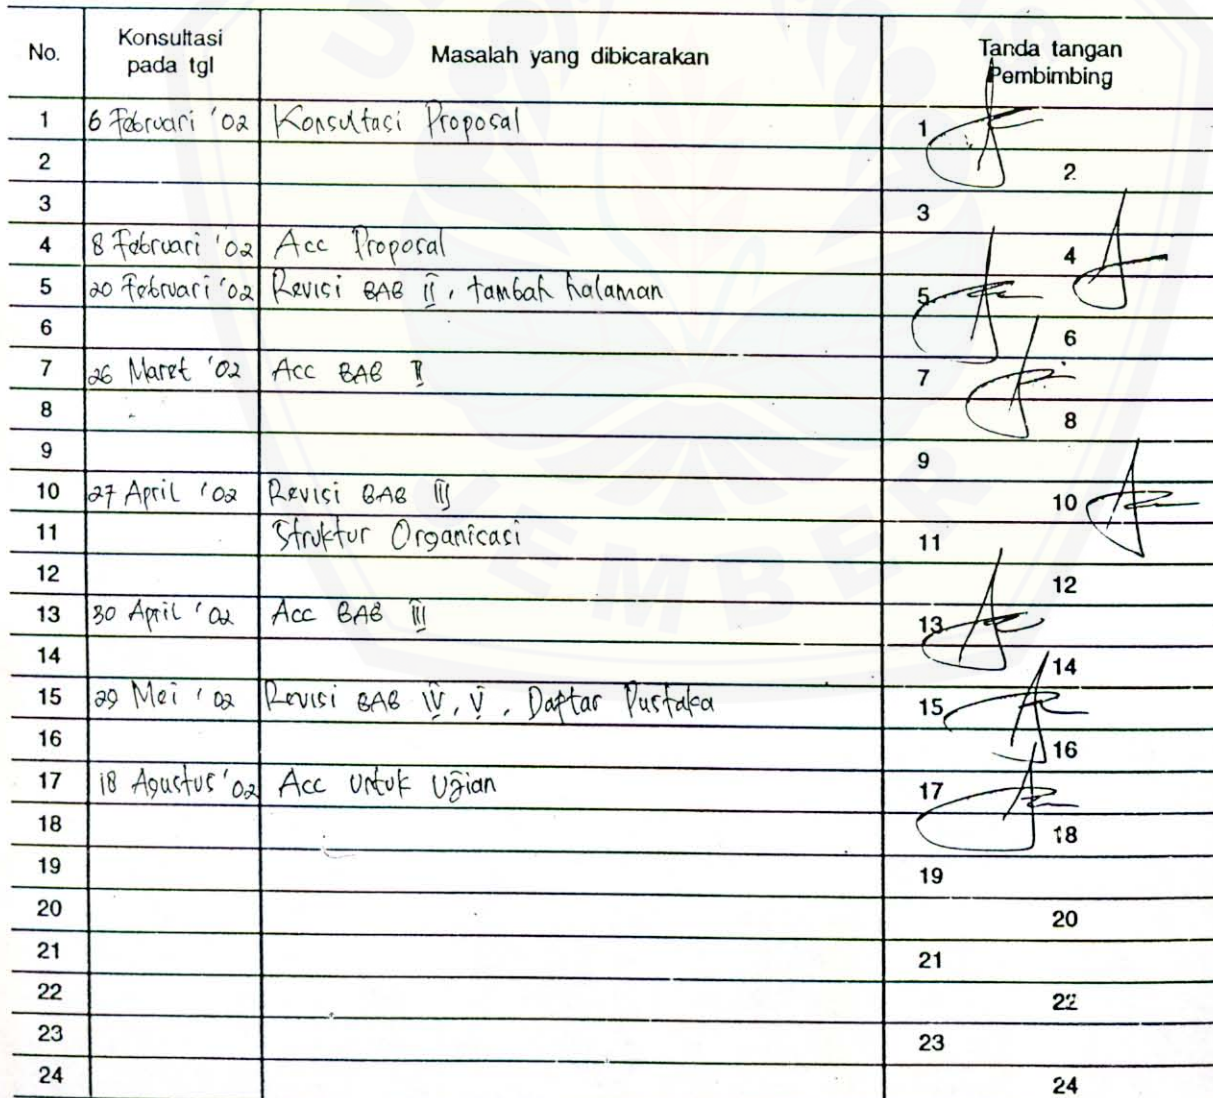 No. Konsultasi pada tgl Masalah yang dibicarakan Tanda tangan Pembimbing
1 6 Februari '02 Konsultasi Proposal 1
2 2
3 3
4 8 Februari '02 Acc Proposal 4
5 20 Februari '02 Revisi BAB II, tambah halaman 5
6 6
7 26 Maret '02 Acc BAB II 7
8 8
9 9
10 27 April '02 Revisi BAB III 10
11 Struktur Organisasi 11
12 12
13 30 April '02 Acc BAB III 13
14 14
15 29 Mei '02 Revisi BAB IV, V, Daftar Pustaka 15
16 16
17 18 Agustus '02 Acc untuk Ujian 17
18 18
19 19
20 20
21 21
22 22
23 23
24 24
JEMBER